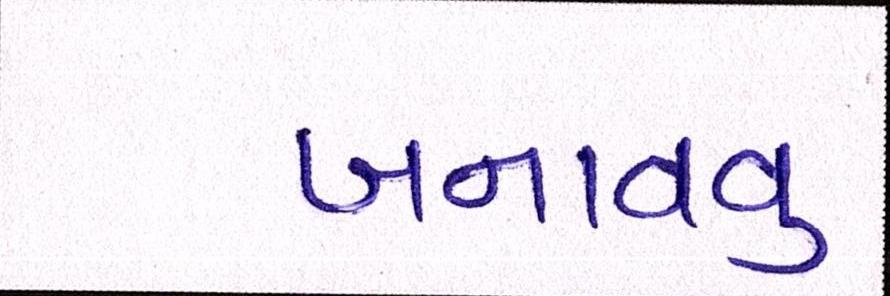 બનાવવુ